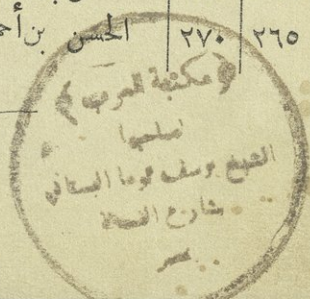 ٢٦٥ ٢٧٠ الحسن بن أحمـ
﴿مكتبة العرب﴾
لصاحبها
الشيخ يوسف توما البستاني
بشارع الفجالة
بمصر